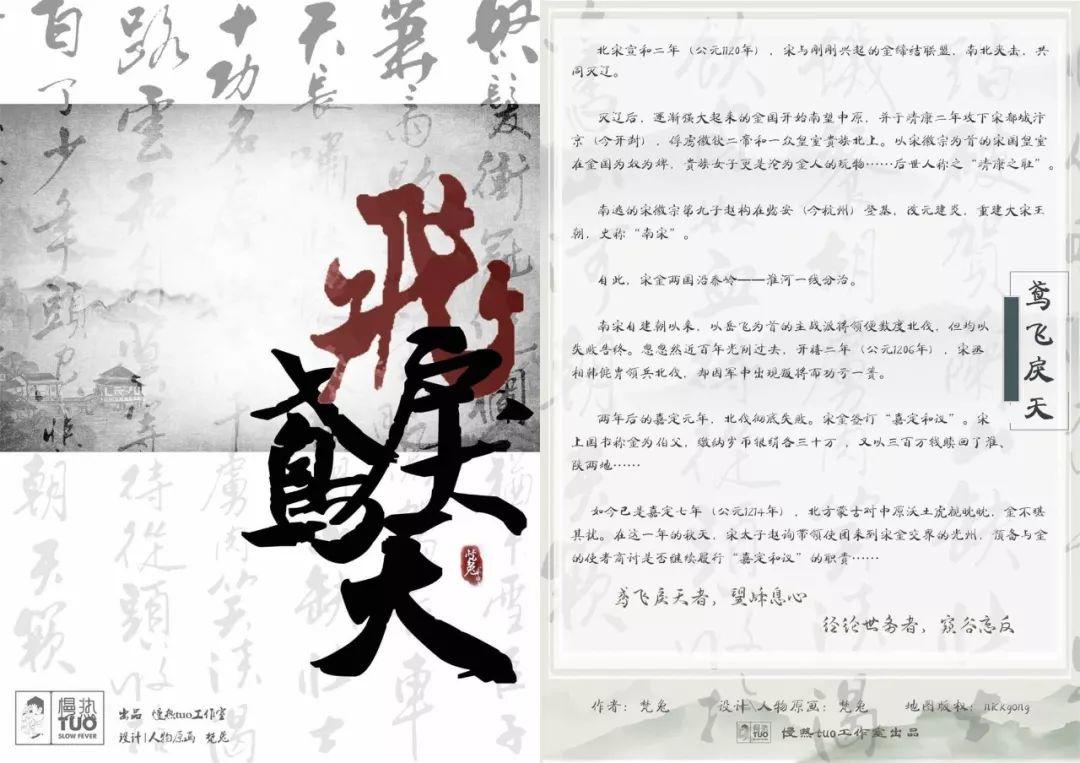 鳶飛戾天
梵兔
慢热
TUO
SLOW FEVER
出品 慢热tuo工作室
设计|人物原画 梵兔
北宋宣和二年（公元1120年），宋与刚刚兴起的金缔结联盟，南北夹击，共
同灭辽。
灭辽后，逐渐强大起来的金国开始南望中原，并于靖康二年攻下宋都城汴
京（今开封），俘虏徽钦二帝和一众皇室贵族北上。以宋徽宗为首的宋国皇室
在金国为奴为婢，贵族女子更是沦为金人的玩物……后世人称之“靖康之耻”。
南逃的宋徽宗第九子赵构在临安（今杭州）登基，改元建炎，重建大宋王
朝，史称“南宋”。
自此，宋金两国沿秦岭——淮河一线分治。
南宋自建朝以来，以岳飞为首的主战派将领便数度北伐，但均以
失败告终。忽忽然近百年光阴过去，开禧二年（公元1206年），宋丞
相韩侂胄领兵北伐，却因军中出现叛将而功亏一篑。
两年后的嘉定元年，北伐彻底失败。宋金签订“嘉定和议”。宋
上国书称金为伯父，缴纳岁币银绢各三十万，又以三百万钱赎回了淮、
陕两地……
如今已是嘉定七年（公元1214年），北方蒙古对中原沃土虎视眈眈，金不堪
其扰。在这一年的秋天，宋太子赵询带领使团来到宋金交界的光州，预备与金
的使者商讨是否继续履行“嘉定和议”的职责……
鸢飞戾天者，望峰息心
经纶世务者，窥谷忘反
鸢飞戾天
作者：梵兔 设计\人物原画：梵兔 地图版权：nickgong
慢热
TUO
慢热tuo工作室出品